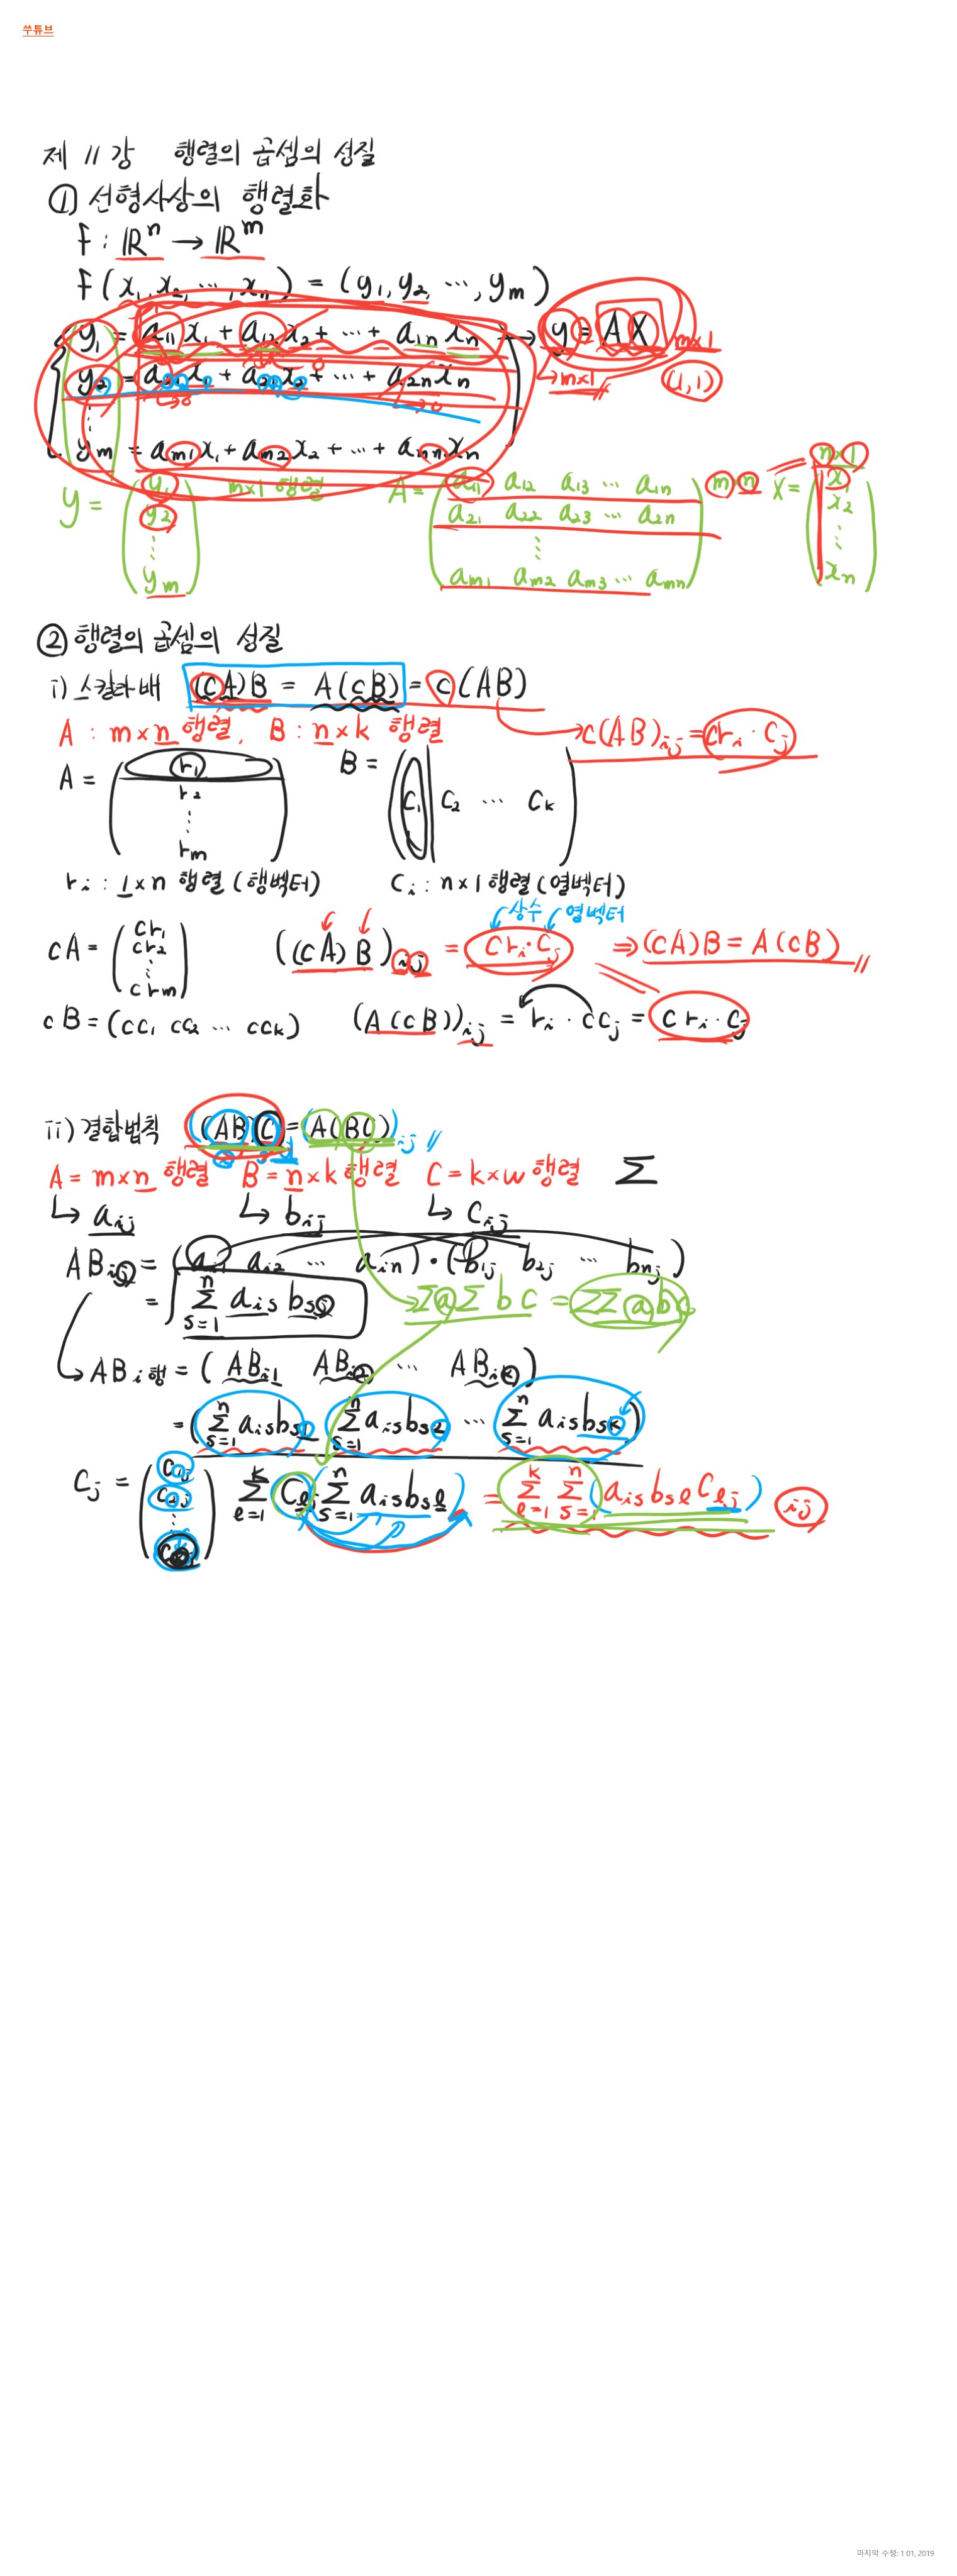 쑤튜브
제 11강 행렬의 곱셈의 성질
① 선형사상의 행렬화
f : ℝⁿ → ℝᵐ
f(x₁, x₂, …, xₙ) = (y₁, y₂, …, yₘ)
y₁ = a₁₁x₁ + a₁₂x₂ + … + a₁ₙxₙ → y = AX m×1
y₂ = a₂₁x₁ + a₂₂x₂ + … + a₂ₙxₙ → m×1 (1,1)
⋮
yₘ = aₘ₁x₁ + aₘ₂x₂ + … + aₙₙxₙ n×1
y = (y₁ y₂ ⋮ yₘ) m×1 행렬 A = (a₁₁ a₁₂ a₁₃ … a₁ₙ m×n X = (x₁ x₂ ⋮ xₙ)
a₂₁ a₂₂ a₂₃ … a₂ₙ
⋮
aₘ₁ aₘ₂ aₘ₃ … aₘₙ)
② 행렬의 곱셈의 성질
i) 스칼라배 (cA)B = A(cB) = c(AB)
A : m×n 행렬, B : n×k 행렬 → c(AB)ᵢⱼ = crᵢ · cⱼ
A = (r₁ r₂ ⋮ rₘ) B = (c₁ c₂ … cₖ)
rᵢ : 1×n 행렬 (행벡터) cᵢ : n×1 행렬 (열벡터)
상수 열벡터
cA = (cr₁ cr₂ ⋮ crₘ) ((cA)B)ᵢⱼ = crᵢ · cⱼ ⇒ (cA)B = A(cB)
cB = (cc₁ cc₂ … ccₖ) (A(cB))ᵢⱼ = rᵢ · ccⱼ = crᵢ · cⱼ
ii) 결합법칙 (AB)C = (A(BC))ᵢⱼ
A = m×n 행렬 B = n×k 행렬 C = k×w 행렬 Σ
↳ aᵢⱼ ↳ bᵢⱼ ↳ cᵢⱼ
ABᵢⱼ = (aᵢ₁ aᵢ₂ … aᵢₙ) · (b₁ⱼ b₂ⱼ … bₙⱼ)
= Σₛ₌₁ⁿ aᵢₛ bₛⱼ Σ a Σ b c = ΣΣ a b c
↳ AB ᵢ행 = (ABᵢ₁ ABᵢ₂ … ABᵢₖ)
= (Σₛ₌₁ⁿ aᵢₛbₛ₁ Σₛ₌₁ⁿ aᵢₛbₛ₂ … Σₛ₌₁ⁿ aᵢₛbₛₖ)
Cⱼ = (c₁ⱼ c₂ⱼ ⋮ cₖⱼ) Σℓ₌₁ᵏ Cℓⱼ Σₛ₌₁ⁿ aᵢₛ bₛℓ = Σℓ₌₁ᵏ Σₛ₌₁ⁿ (aᵢₛ bₛℓ Cℓⱼ) ij
마지막 수정: 1 01, 2019